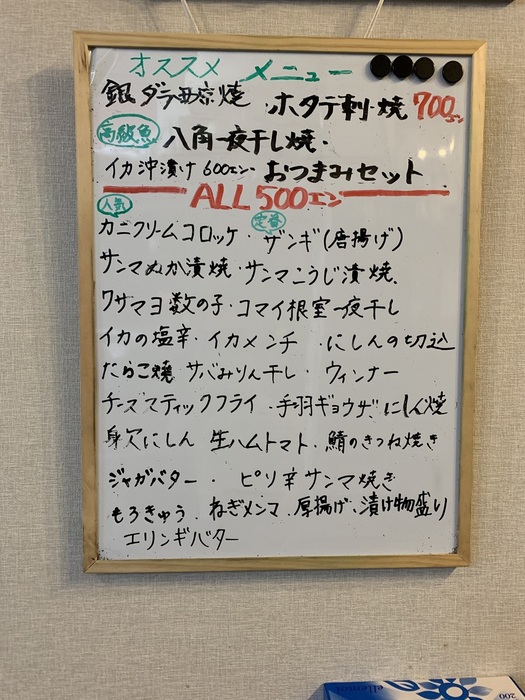 オススメ メニュー
銀ダラ西京焼 ・ホタテ刺・焼 700エン
高級魚 八角一夜干し焼・
イカ沖漬け 600エン・ おつまみセット
ALL 500エン
人気 定番
カニクリームコロッケ・ ザンギ(唐揚げ)
サンマぬか漬焼・サンマこうじ漬焼、
ワサマヨ数の子・コマイ根室一夜干し
イカの塩辛・イカメンチ ・にしんの切込
たらこ焼 サバみりん干し・ ウィンナー
チーズスティックフライ・手羽ギョウザ にしん焼
身欠にしん 生ハムトマト・鯖のきつね焼き
ジャガバター・ ピリ辛サンマ焼き
もろきゅう・ねぎメンマ・厚揚げ、漬け物盛り
エリンギバター
ellemoi
200